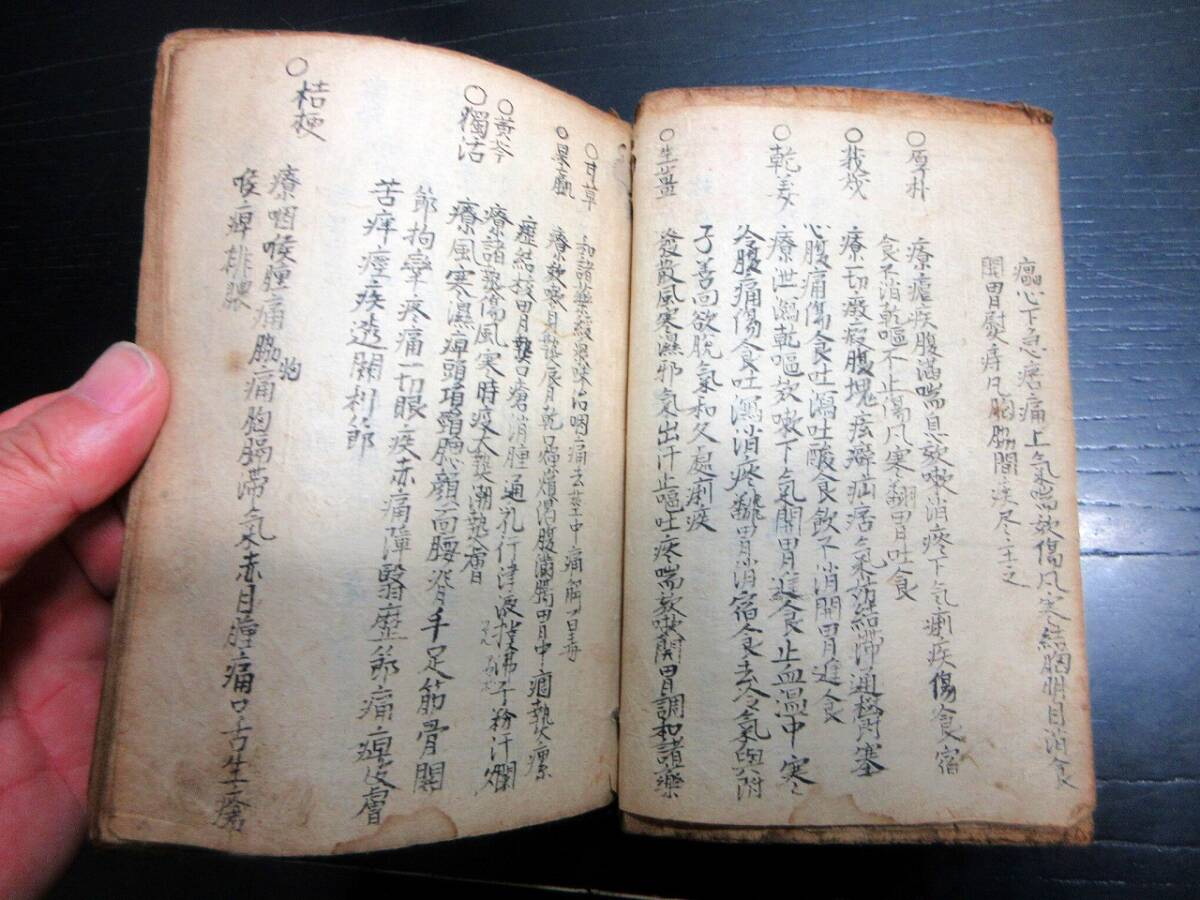 心下急痞痛上氣喘欬傷風寒結胸明目消食
開胃
○厚朴
療瘧疾腹滿喘息欬嗽消痰下氣痢疾傷食宿
食不消乾嘔不止傷风寒翻胃吐食
○莪茂
療一切癥瘕腹塊痃癖疝痞氣結滯通塞
心腹痛傷食吐瀉吐酸食飲不消開胃進食
○乾姜
療泄瀉乾嘔欬嗽下气開胃進食止血温中寒
冷腹痛傷食吐瀉消痰翻胃消宿食去冷氣與附
子善回欲脫气和久瘧痢疾
○生薑
發散風寒濕邪气出汗止嘔吐痰喘欬嗽開胃調和諸藥
○甘草
和諸藥治咽痛去莖中痛解百毒
○
療欬嗽身熱胃乾口瘍煩渴腹滿胃中痼熱瘰
癧結核胃熱口瘡消腫通乳行津液
○黃芩
療諸熱傷風寒時疫大熱潮熱膚
○獨活
療風寒濕痺頭項顏面腰脊手足筋骨關
節拘攣疼痛一切眼疾赤痛障翳歷節痛痺皮膚
苦痒痙疾透關利節
○桔梗
療咽喉腫痛脇痛胸膈滯气赤目腫痛口舌生瘡
喉痺排膿
物